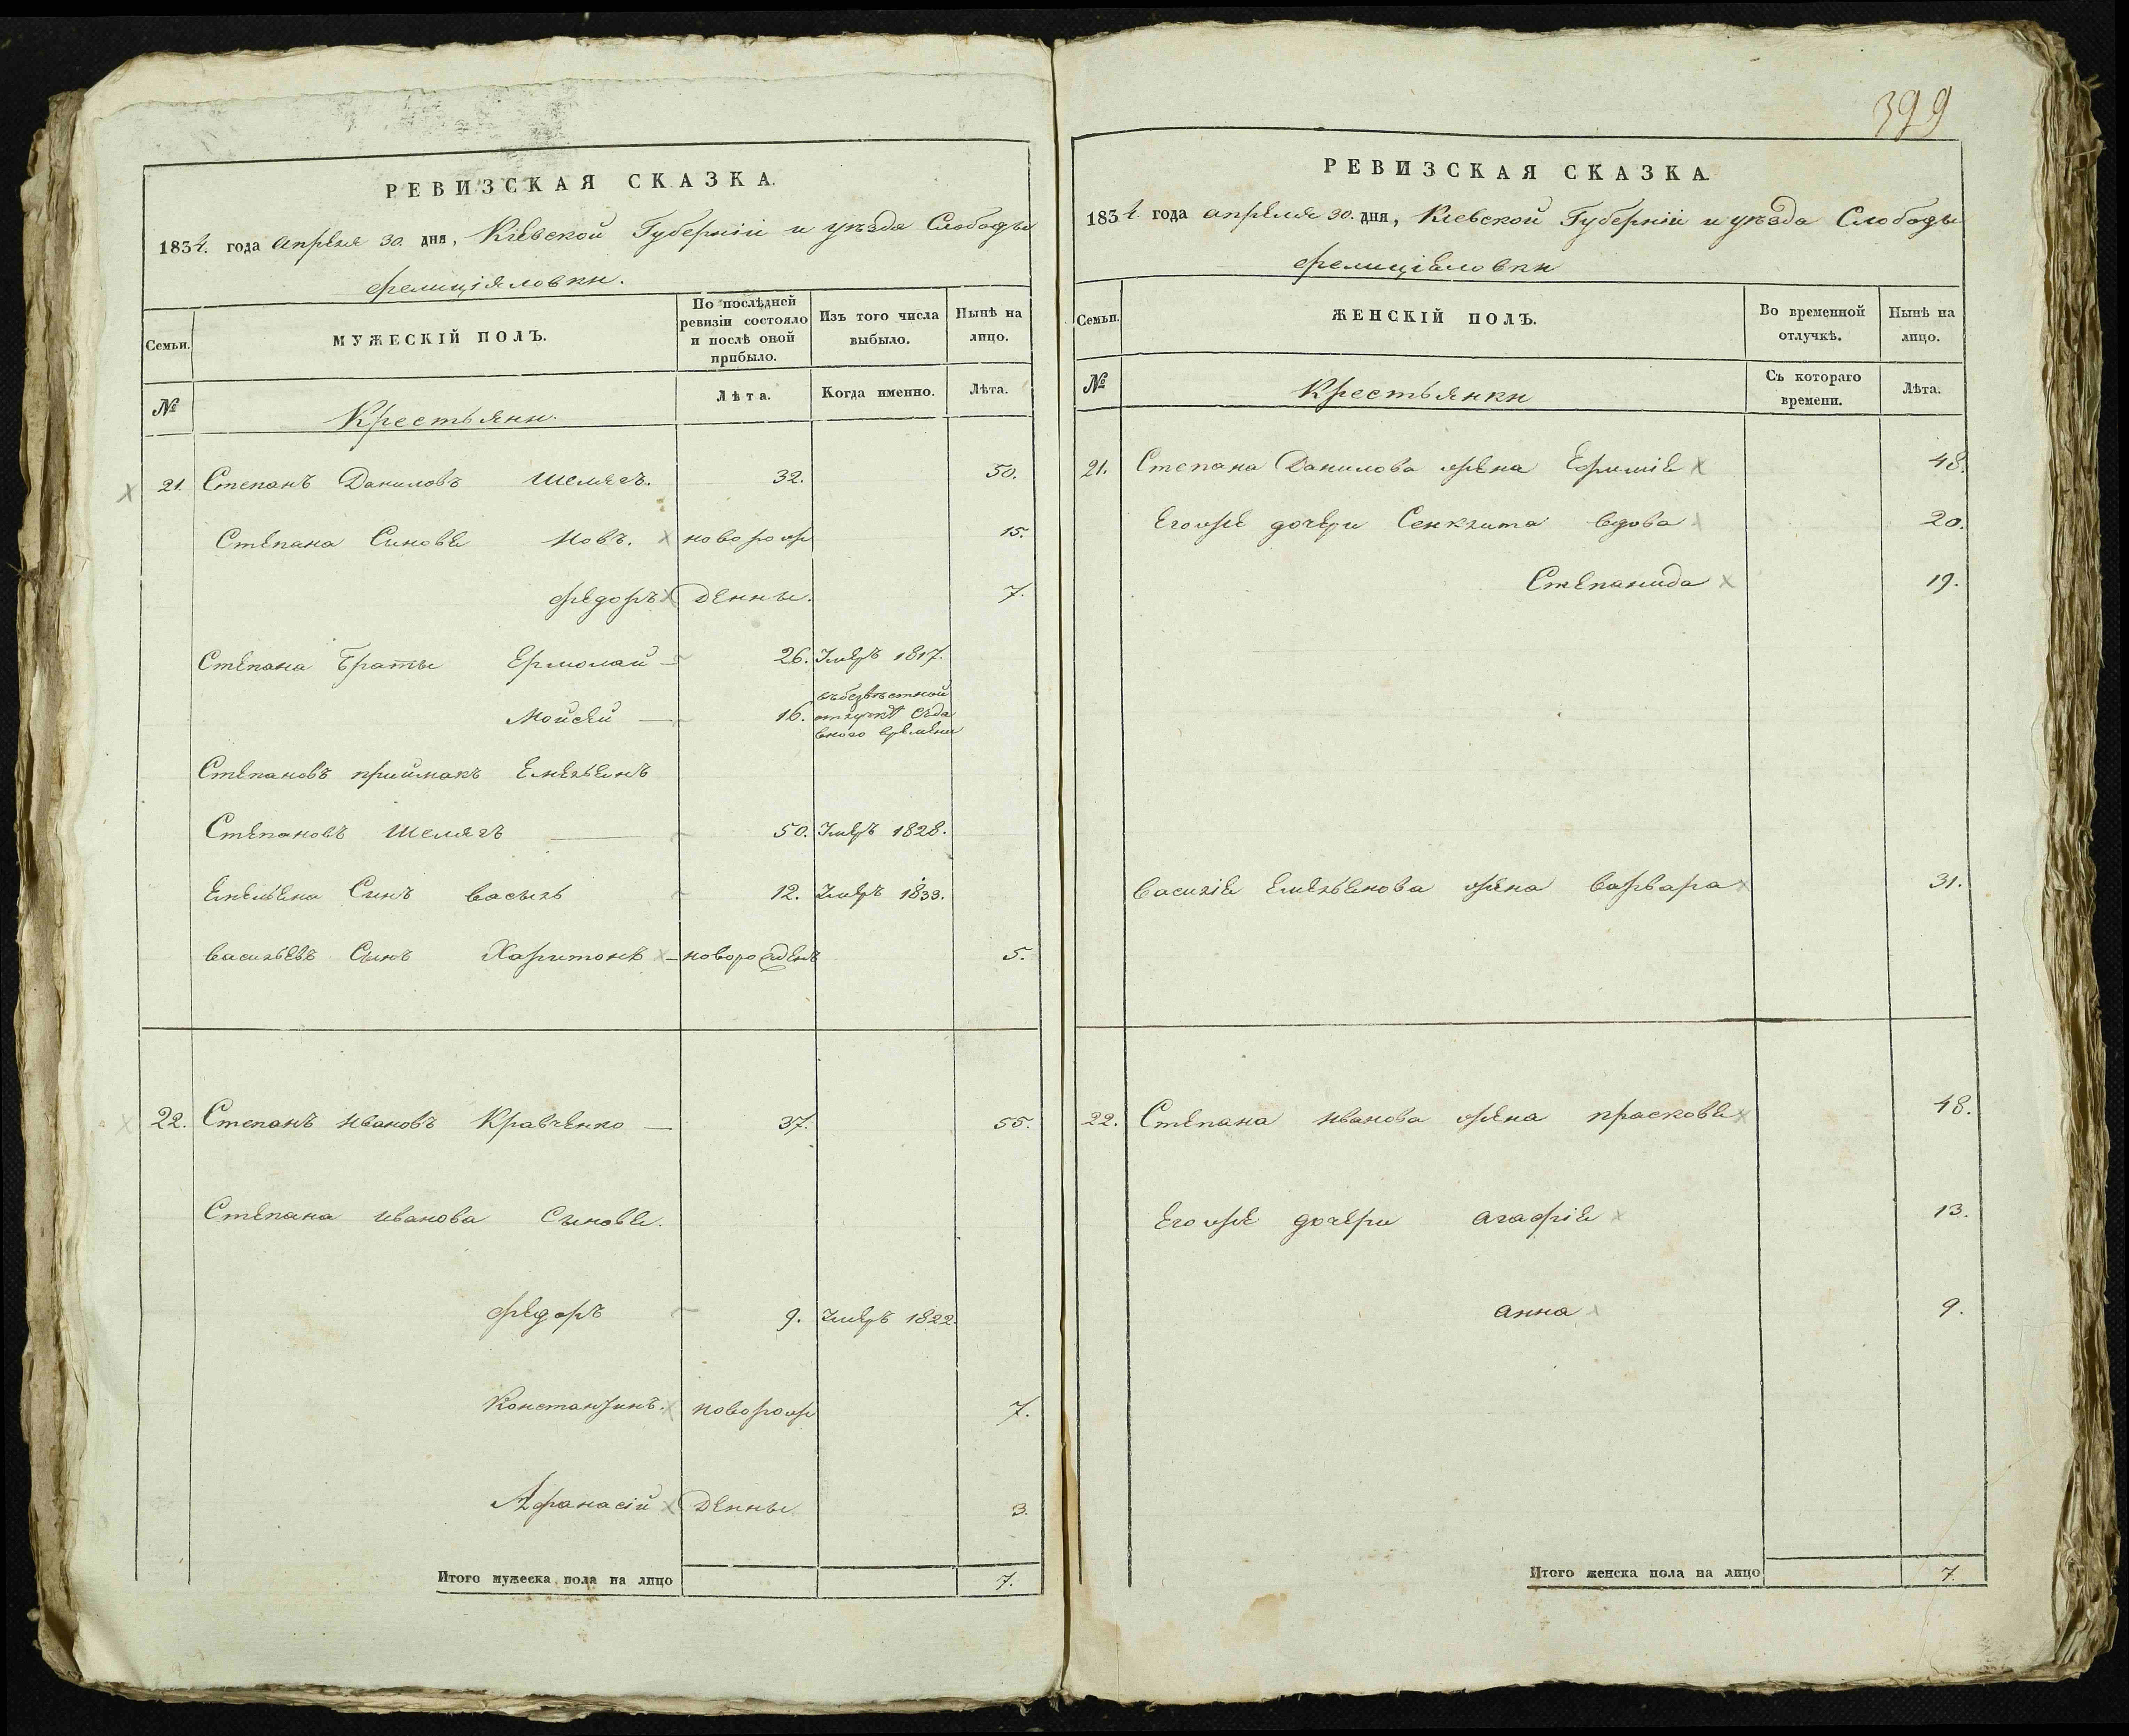 РЕВИЗСКАЯ СКАЗКА.
1834. года апреля 30. дня, Кіевской Губерніи и уезда Слободы
фелиціяловки.
Семьи.
МУЖЕСКІЙ ПОЛЪ.
По послѣдней ревизіи состояло и послѣ оной прибыло.
Изъ того числа выбыло.
Нынѣ на лицо.
№
Крестьяни.
Лѣта.
Когда именно.
Лѣта.
21. Степанъ Даниловъ Шелягъ. 32. 50.
Степана Синове новорож 15.
федоръ денны. 7.
Степана Браты Ермолай 26. Умеръ 1817.
Мойсей 16. въ безвестной
отлучке съ да
вного времени
Степановъ приймакъ Емельянъ
Степановъ Шелягъ 50. Умеръ 1828.
Емельяна Синъ Василь 12. Умеръ 1833.
васильевъ Сынъ Харитонъ новорожденъ 5.
22. Степанъ Ивановъ Кравченко 37. 55.
Степана иванова Сынове.
федоръ 9. Умеръ 1822.
Константинъ. новорож 7.
Афанасій денны 3.
Итого мужеска пола на лицо 7.
399
РЕВИЗСКАЯ СКАЗКА.
1834. года апреля 30. дня, Кіевской Губерніи и уезда Слободы
фелиціяловки
Семьи.
ЖЕНСКІЙ ПОЛЪ.
Во временной отлучкѣ.
Нынѣ на лицо.
№
Крестьянки
Съ котораго времени.
Лѣта.
21. Степана Данилова жена Ефимія 48.
Егоже дочери вдова 20.
Степанида 19.
Василія Емельянова жена варвара 31.
22. Степана иванова жена прасковья 48.
Егоже дочери агафія 13.
анна 9.
Итого женска пола на лицо 7.